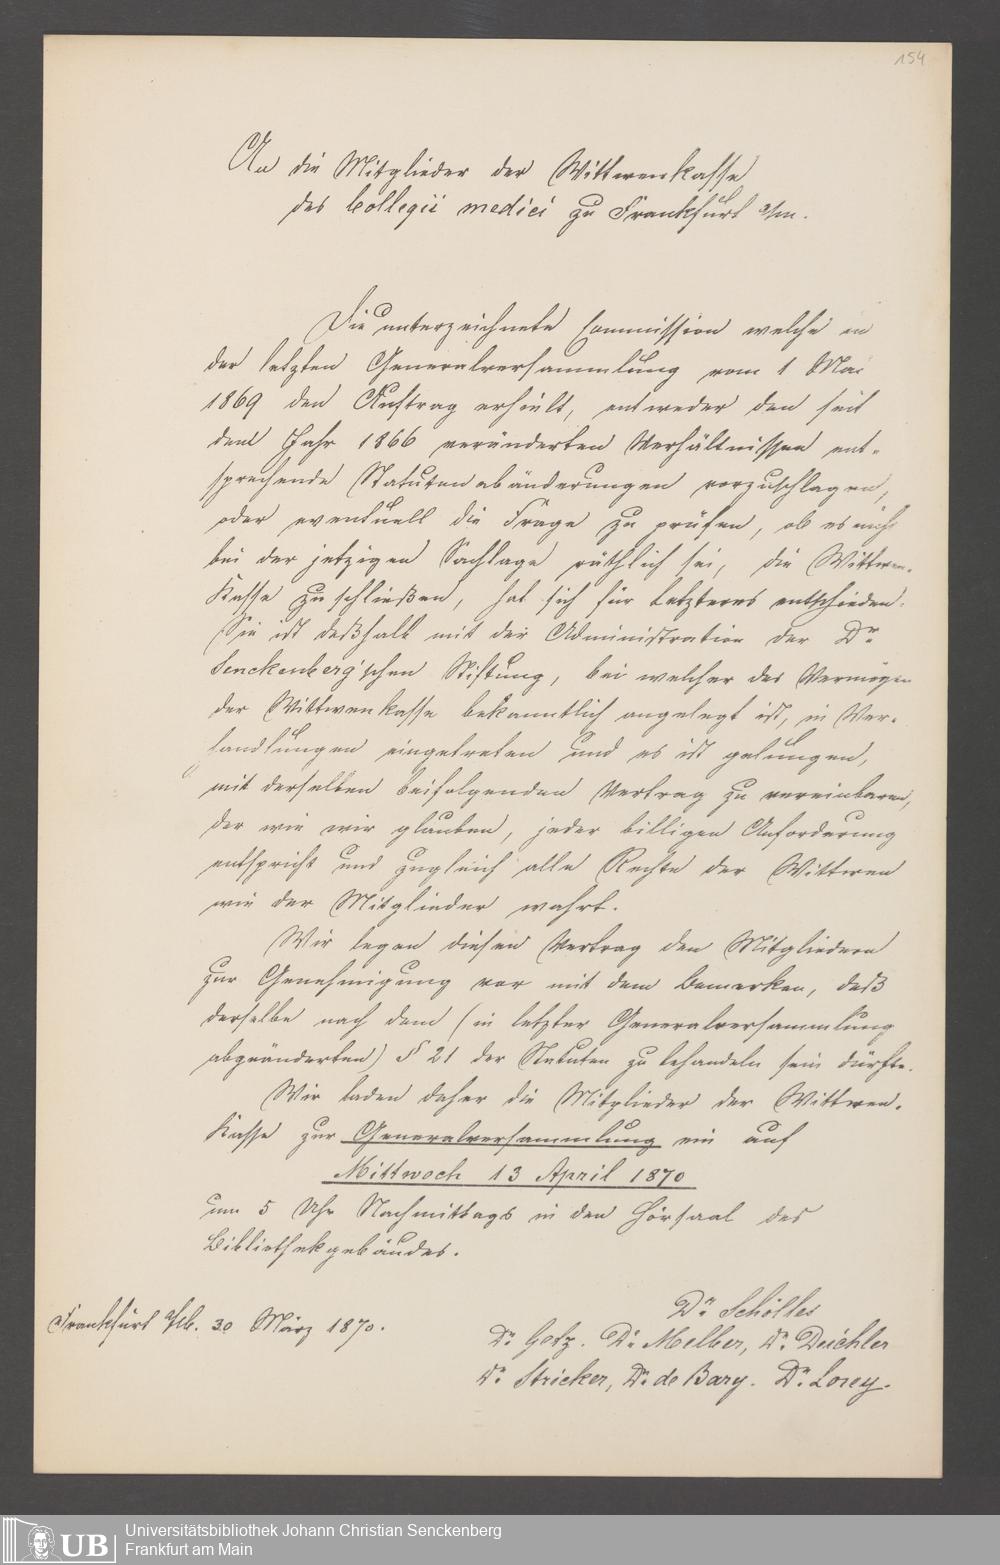 154
An die Mitglieder der Wittwenkasse
des Collegii medici zu Frankfurt a/m.
Die unterzeichnete Commission welche in
der letzten Generalversammlung vom 1 Mai
1869 den Auftrag erhielt, entweder den seit
dem Jahr 1866 veränderten Verhältnissen ent-
sprechende Statutenabänderungen vorzuschlagen,
oder eventuell die Frage zu prüfen, ob es nicht
bei der jetzigen Sachlage räthlich sei, die Wittwen-
Kasse zu schließen, hat sich für Letzteres entschieden.
Sie ist deßhalb mit der Administration der Dr
Senckenberg'schen Stiftung, bei welcher das Vermögen
der Wittwenkasse bekanntlich angelegt ist, in Ver-
handlungen eingetreten und es ist gelungen,
mit derselben beifolgenden Vertrag zu vereinbaren,
der wie wir glauben, jeder billigen Anforderung
entspricht und zugleich alle Rechte der Wittwen
wie der Mitglieder wahrt.
Wir legen diesen Vertrag den Mitgliedern
zur Genehmigung vor mit dem Bemerken, daß
derselbe nach dem (in letzter Generalversammlung
abgeänderten) § 21 der Statuten zu behandeln sein dürfte.
Wir laden daher die Mitglieder der Wittwen-
Kasse zur Generalversammlung ein auf
Mittwoch 13 April 1870
um 5 Uhr Nachmittags in den Hörsaal des
Bibliothekgebäudes.
Frankfurt 30 März 1870.
Dr Schölles
Dr Getz. Dr Melber, Dr. Deichler
Dr. Stricker, Dr. de Bary. Dr. Lorey.
UB
Universitätsbibliothek Johann Christian Senckenberg
Frankfurt am Main